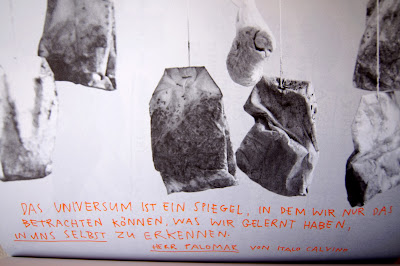 DAS UNIVERSUM IST EIN SPIEGEL, IN DEM WIR NUR DAS
BETRACHTEN KÖNNEN, WAS WIR GELERNT HABEN,
IN UNS SELBST ZU ERKENNEN.
HERR TALOMAR VON ITALO CALVINO